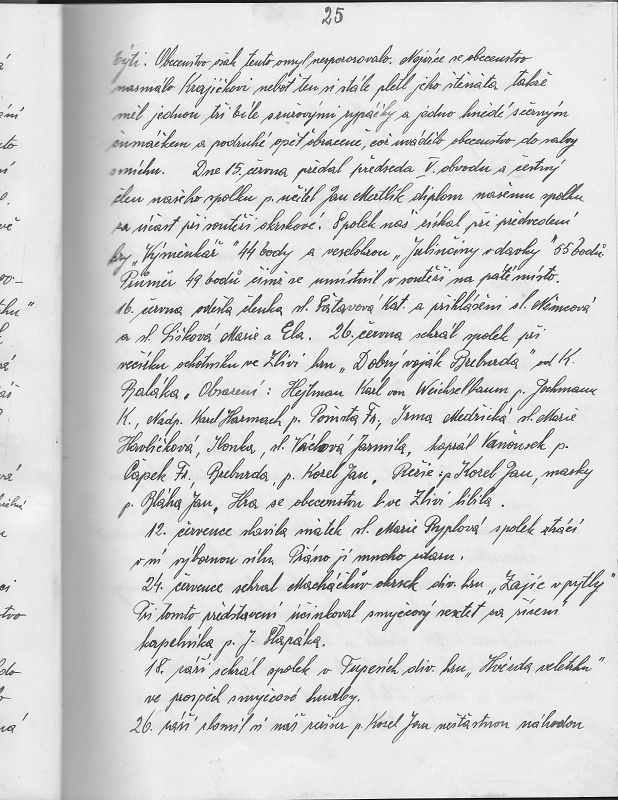 25
býti. Obecenstvo však tento omyl nezpozorovalo. Nejvíce se obecenstvo
nasmálo Krajíčkovi neboť ten si stále pletl jeho štěňata takže
měl jednou tři bílé s růžovými rypáčky a jedno hnědé s černým
čumáčkem a podruhé opět obráceně, což uvádělo obecenstvo do salvy
smíchu. Dne 15. června předal předseda V. obvodu a čestný
člen našeho spolku p. učitel Jan diplom našemu spolku
za účast při soutěži okrskové. Spolek náš získal při předvedení
hry „Výměnkář" 44 body a veselohrou „Julinčiny vdavky" 55 bodů
Průměr 49 bodů čímž se umístnil v soutěži na páté místo.
16. června odešla členka sl. Kat. a přihlášeni sl. Němcová
a sl. Lišková Marie a Ela. 26. června sehrál spolek při
věčišku ochotníku ve Zlivi hru „Dobrý voják Breburda" od K.
Baláka„ Obsazení: Hejtman Karl von Weichselbaum p. Jochmann
K., Nadp. Karel Harmach p. Fr., Irma Medřická sl. Marie
Havlíčková, Ilonka, sl. Váchová Jarmila, kaprál Vaňousek p.
Čapek Fr., Breburda, p. Kozel Jan, Režie: p Kozel Jan, masky
p. Bláha Jan, Hra se obecenstvu ve Zlivi líbila.
12. července slavila sňatek sl. Marie spolek ztrácí
v ní výbornou sílu. Přáno jí mnoho zdaru.
24. července sehrál Macháčkův okrsek div. hru „Zajíc v pytly"
Při tomto představení účinkoval smyčcový sextet za řízení
kapelníka p. J. Šlapáka.
18. září sehrál spolek v Pupeních div. hru „Hvězda veletrhu"
ve prospěch smyčcové hudby.
26. září zlomil si náš režisér p. Kozel Jan nešťastnou náhodou